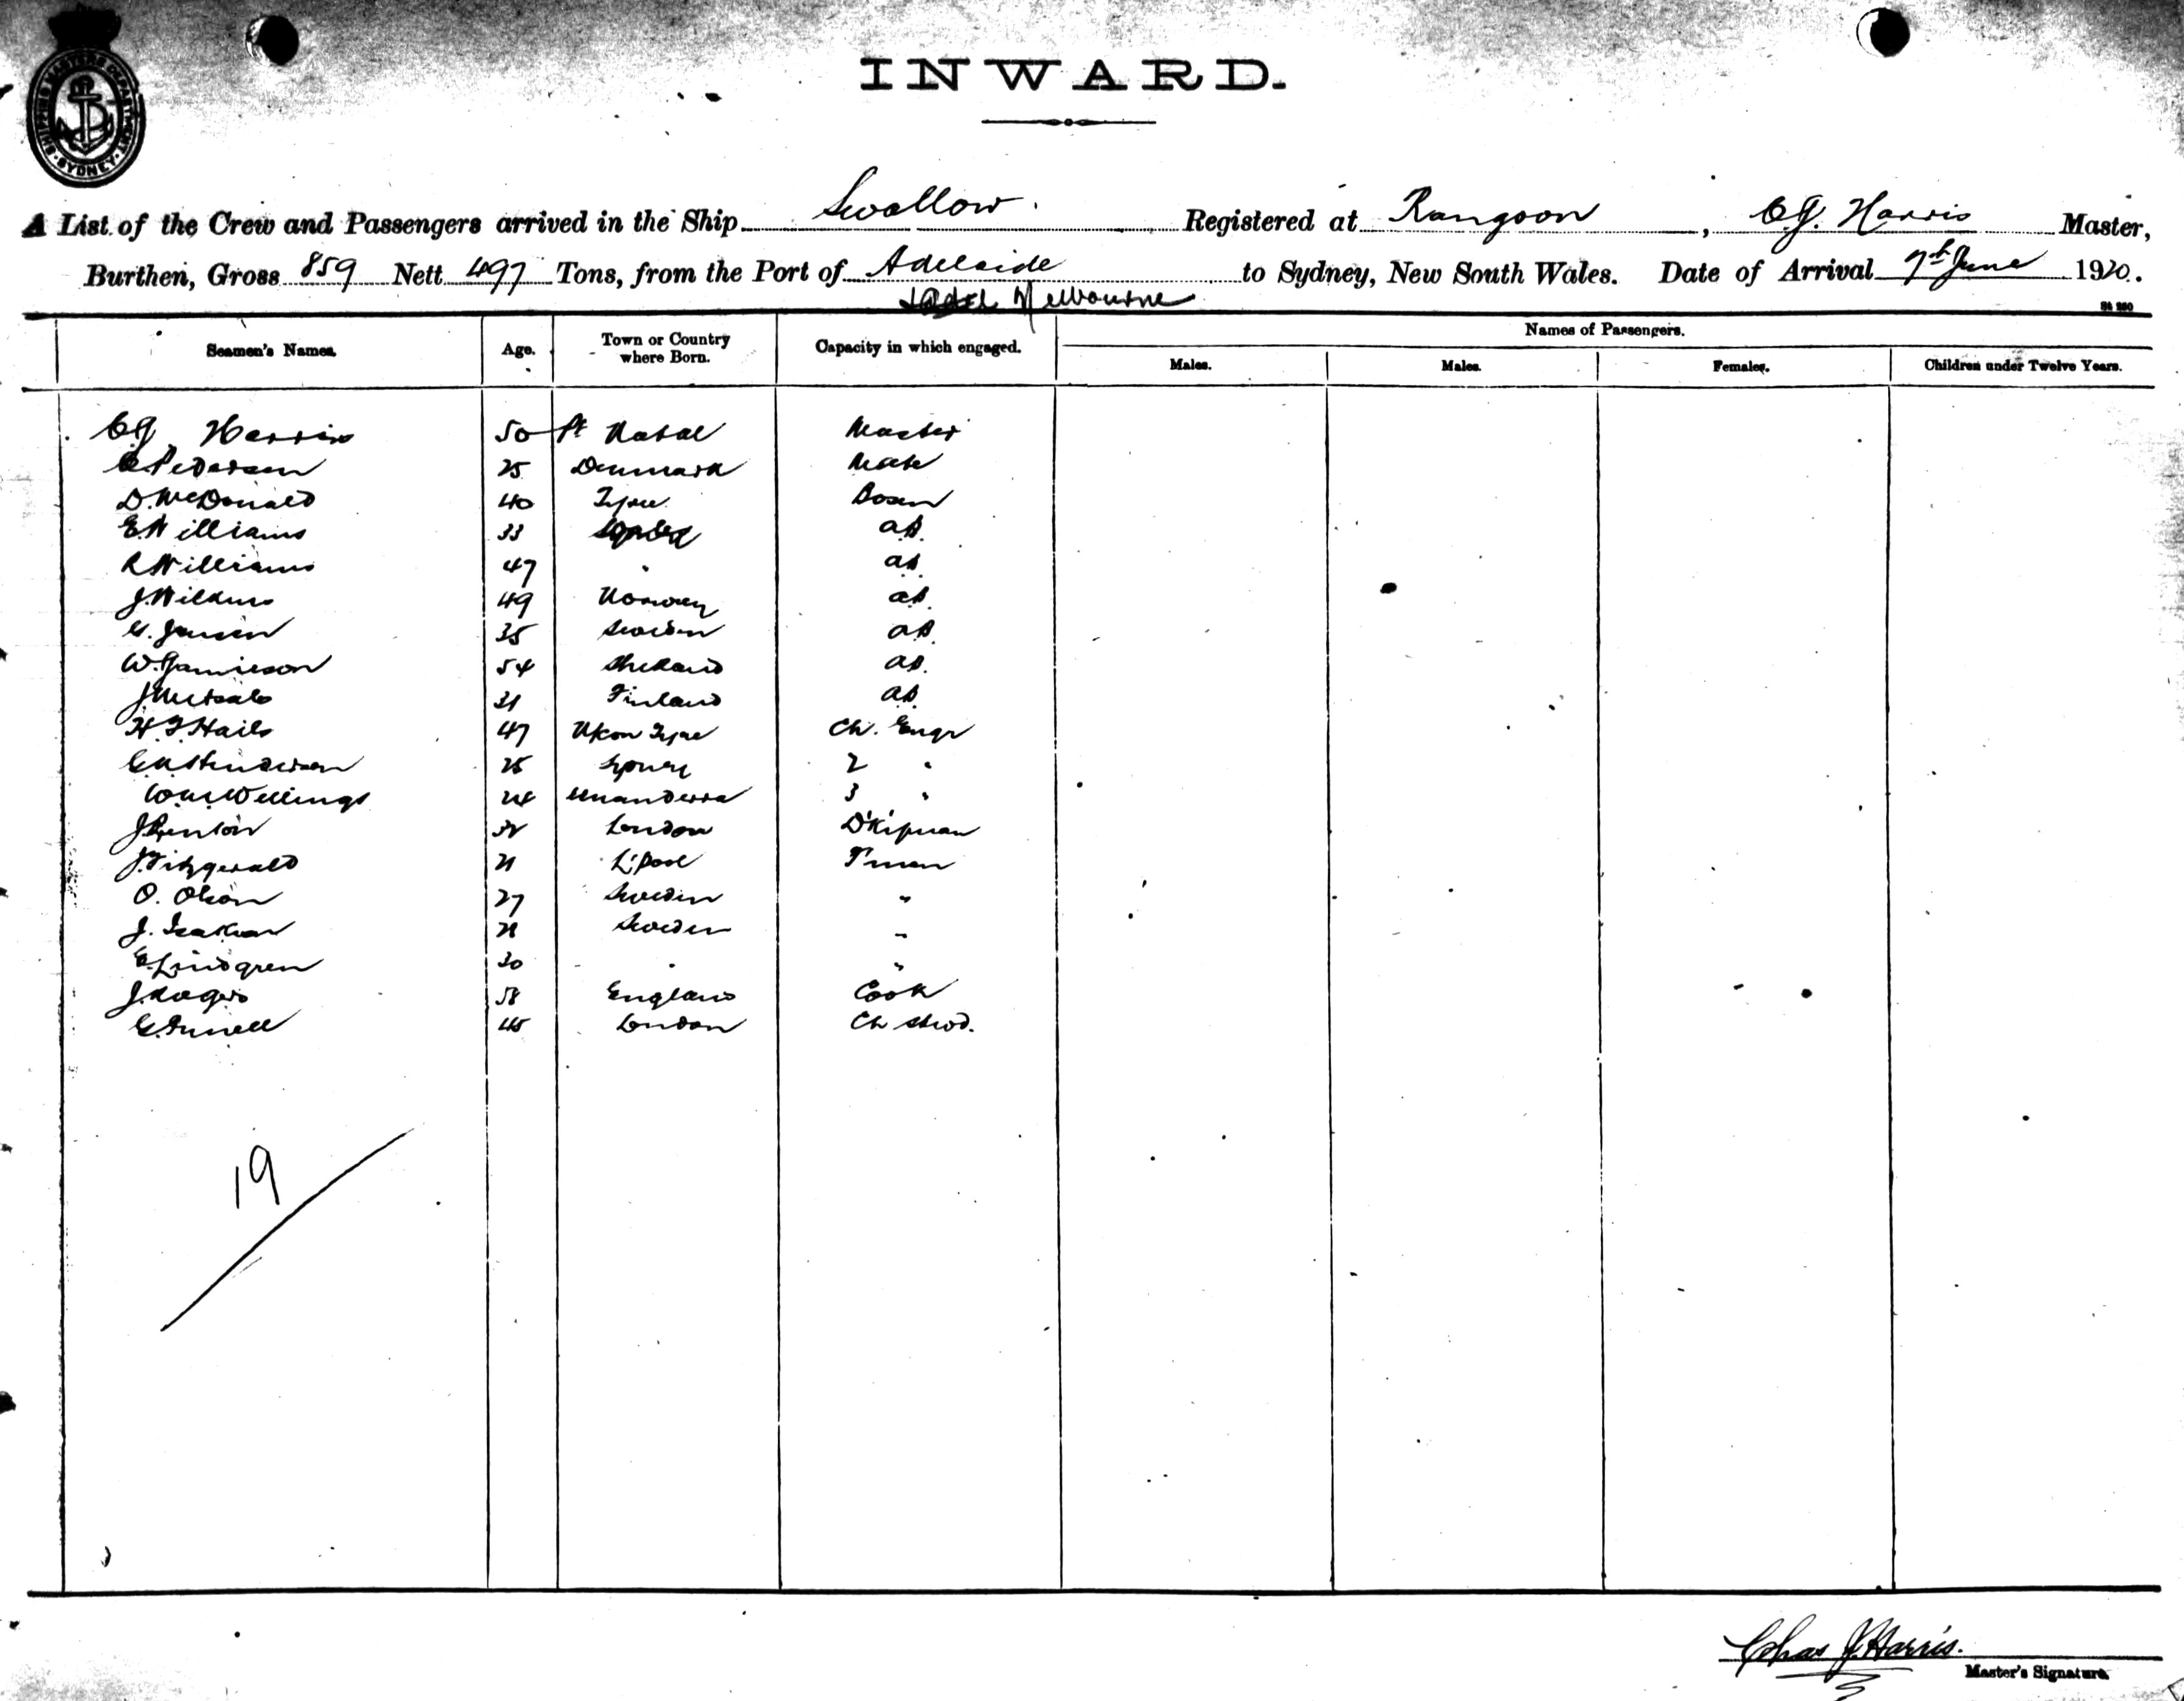 SHIPPING MASTERS DEPARTMENT SYDNEY
INWARD.
A List of the Crew and Passengers arrived in the Ship Swallow Registered at Rangoon, C.J. Harris Master,
Burthen, Gross 859 Nett 497 Tons, from the Port of Adelaide to Sydney, New South Wales. Date of Arrival 7th June 1920.
Melbourne
Seamen's Names. Age. Town or Country where Born. Capacity in which engaged. Names of Passengers.
Males. Males. Females. Children under Twelve Years.
C.J. Harris 50 Pt Natal Master
C Pedersen 25 Denmark Mate
D. McDonald 40 Tyree Bosun
E Williams 33 A.B.
R Williams 47 " A.B.
J. Wilkins 49 Norway A.B.
Jansen 35 Sweden A.B.
W. Jamieson 54 Shetland A.B.
J Metsalo 31 Finland A.B.
H. T. Hails 47 Upon Tyne Ch. Engr
Henderson 25 Sydney 2 "
Wellings 24 Unanderra 3 "
J Renton London D'kyman
J. Fitzgerald 21 L'pool F'man
O. Olson 27 Sweden "
J. Isakson 21 Sweden "
E. Lindgren 30 " "
J. Rogers 58 England Cook
45 London Ch Stwd.
19
Chas J. Harris.
Master's Signature.